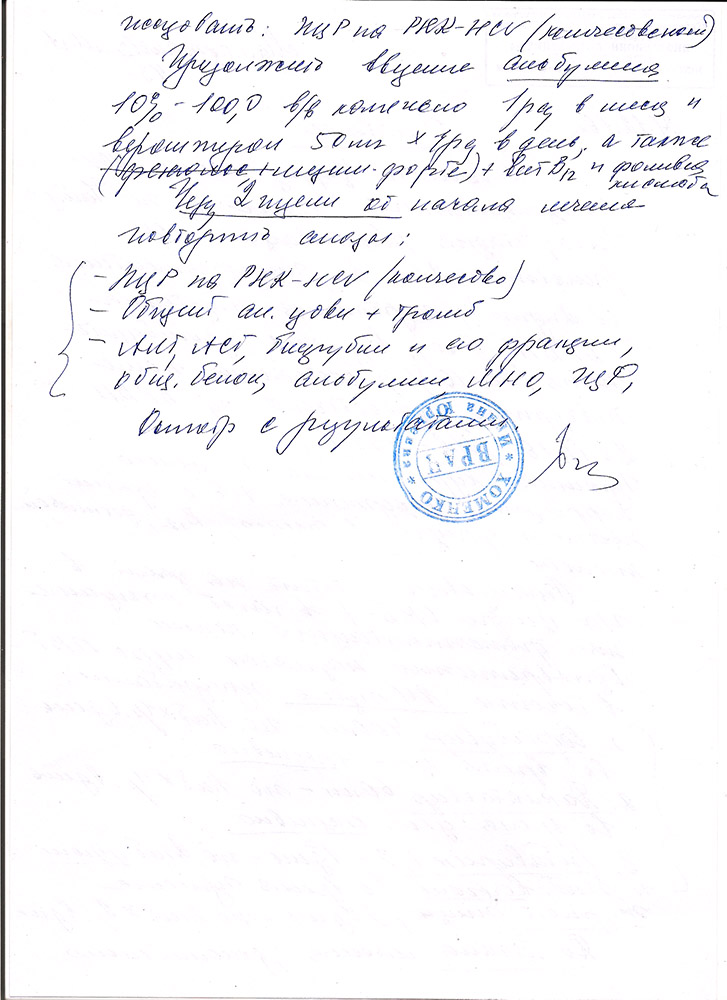 ПЦР на РНК-HCV (количественный)
Продолжить введение альбумина
10% - 100,0 в/в капельно 1 раз в месяц и
верошпирон 50 мг × 1 раз в день, а также
форте) + вит B12 и фолиевая
кислота
Через 2 недели от начала лечения
повторить анализы:
- ПЦР на РНК-HCV (количество)
- Общий ан. крови + тромб
- АЛТ, АСТ, билирубин и его фракции,
общ. белок, альбумин, МНО, ЩФ,
Осмотр с результатами.
* ХОМЕНКО * Юрьевна
ВРАЧ